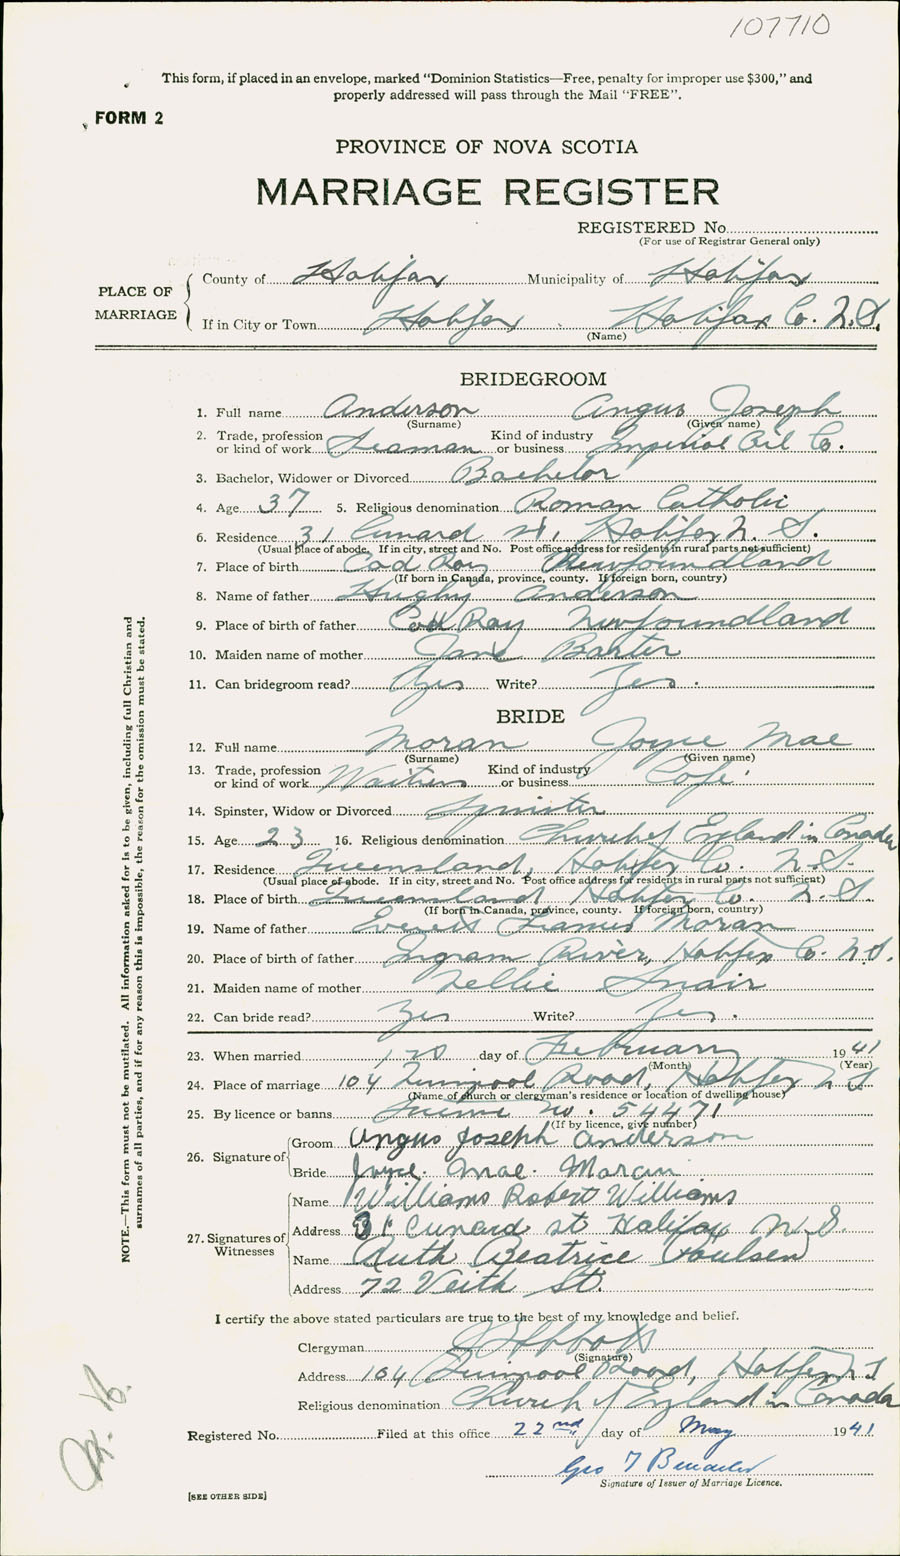 107710
This form, if placed in an envelope, marked "Dominion Statistics—Free, penalty for improper use $300," and
properly addressed will pass through the Mail "FREE".
FORM 2
PROVINCE OF NOVA SCOTIA
MARRIAGE REGISTER
REGISTERED No.
(For use of Registrar General only)
PLACE OF MARRIAGE
County of Halifax Municipality of Halifax
If in City or Town Halifax Halifax Co. N.S.
(Name)
BRIDEGROOM
1. Full name Anderson Angus Joseph
(Surname) (Given name)
2. Trade, profession or kind of work Seaman Kind of industry or business Imperial Oil Co.
3. Bachelor, Widower or Divorced Bachelor
4. Age 37 5. Religious denomination Roman Catholic
6. Residence 31 Cunard St, Halifax N. S.
(Usual place of abode. If in city, street and No. Post office address for residents in rural parts not sufficient)
7. Place of birth Cod Roy Newfoundland
(If born in Canada, province, county. If foreign born, country)
8. Name of father Hughy Anderson
9. Place of birth of father Cod Roy Newfoundland
10. Maiden name of mother Jane Baxter
11. Can bridegroom read? Yes Write? Yes.
BRIDE
12. Full name Moran Joyce Mae
(Surname) (Given name)
13. Trade, profession or kind of work Waitress Kind of industry or business Cafe
14. Spinster, Widow or Divorced Spinster
15. Age 23 16. Religious denomination Church of England in Canada
17. Residence Queensland, Halifax Co. N.S.
(Usual place of abode. If in city, street and No. Post office address for residents in rural parts not sufficient)
18. Place of birth Queensland Halifax Co. N.S.
(If born in Canada, province, county. If foreign born, country)
19. Name of father Everett Moran
20. Place of birth of father Ingram River, Halifax Co. N.S.
21. Maiden name of mother Nellie Snair
22. Can bride read? Yes Write? Yes.
23. When married day of February 1941
(Month) (Year)
24. Place of marriage 104 Quinpool Road, Halifax N S
(Name of church or clergyman's residence or location of dwelling house)
25. By licence or banns No. 54471
(If by licence, give number)
26. Signature of Groom Angus Joseph Anderson
Bride Joyce. Mae. Moran
27. Signatures of Witnesses
Name Williams Robert Williams
Address 31 Cunard st Halifax N. S.
Name Ruth Beatrice Poulsen
Address 72 Veith St.
I certify the above stated particulars are true to the best of my knowledge and belief.
Clergyman
(Signature)
Address 104 Quinpool Road, Halifax N S
Religious denomination Church of England in Canada
Registered No. Filed at this office 22nd day of May 1941
Geo T
Signature of Issuer of Marriage Licence.
[SEE OTHER SIDE]
NOTE.—This form must not be mutilated. All information asked for is to be given, including full Christian and
surnames of all parties, and if for any reason this is impossible, the reason for the omission must be stated.